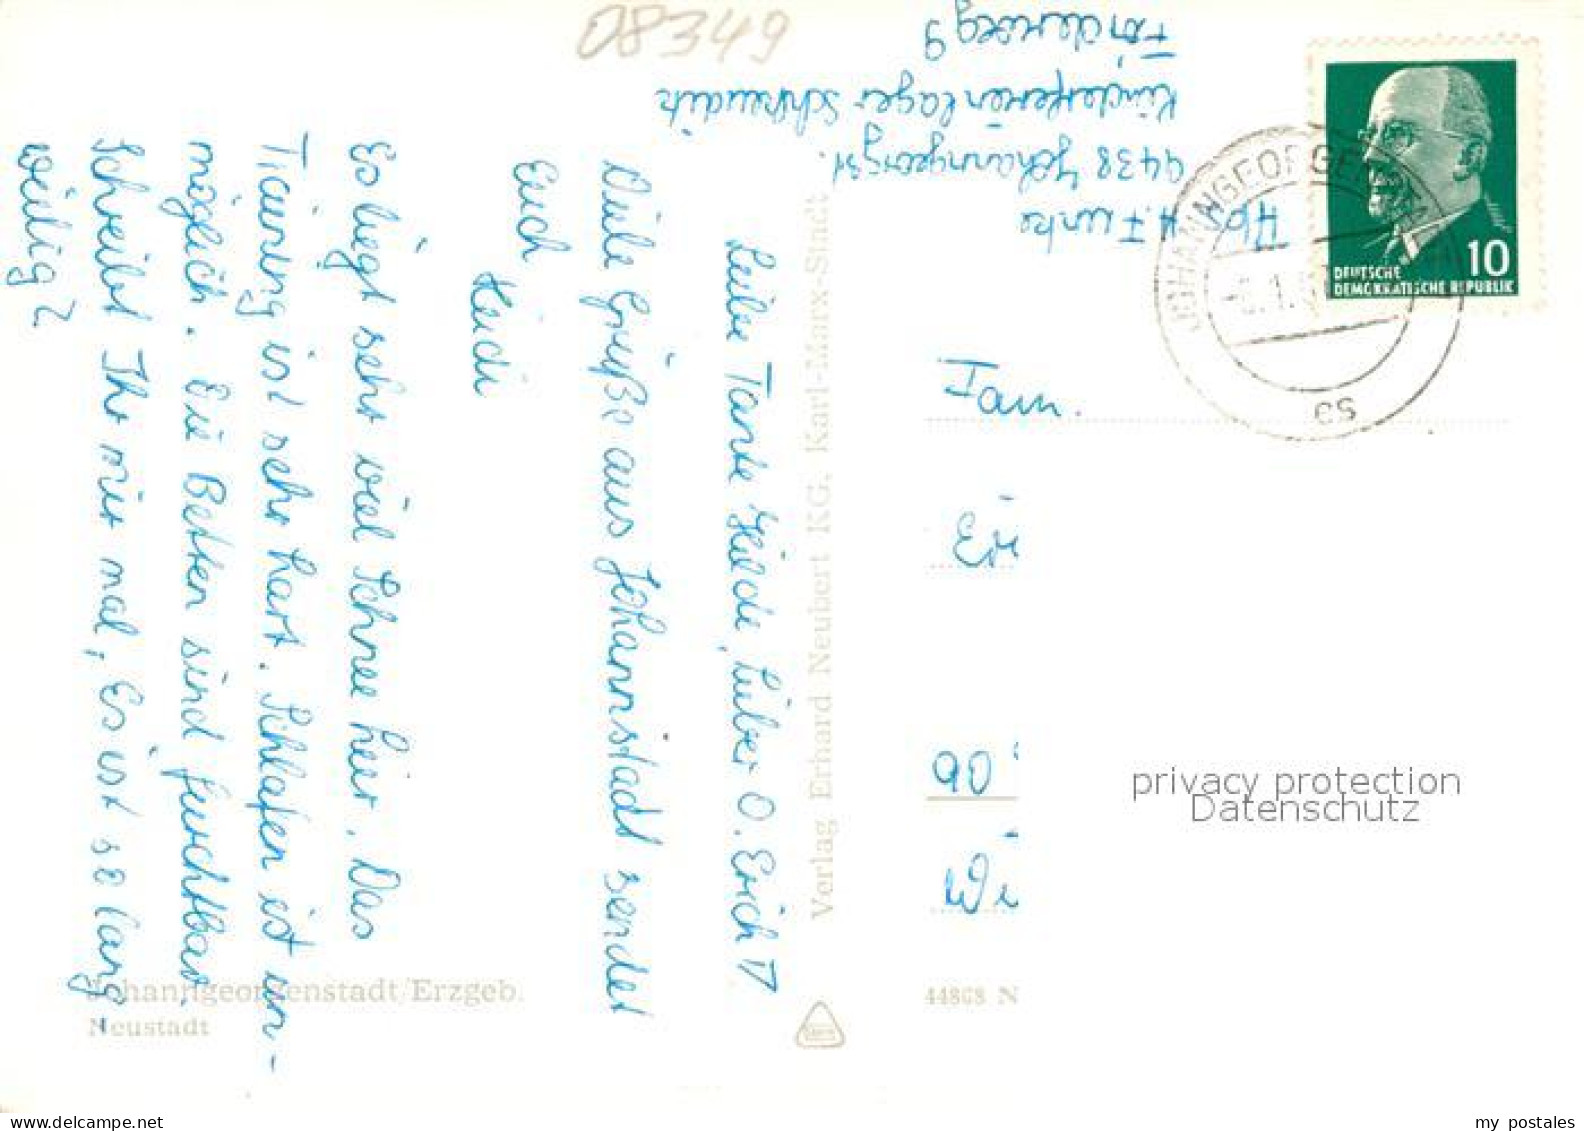 08349
Förderweg 9
Kinderferienlager Schkeuditz
9438 Johanngeorgst.
H. Funke
Liebe Tante Hilde, Lieber O. Erich!
Viele Grüße aus Johannstadt sendet
Euch
Heidi
Es liegt sehr viel Schnee hier. Das
Training ist sehr hart. Schlafen ist un-
möglich. Die Betten sind furchtbar.
Schreibt Ihr mir mal, Es ist so lang
weilig?
Verlag Erhard Neubert KG, Karl-Marx-Stadt
JOHANNGEORGENSTADT
10
DEUTSCHE
DEMOKRATISCHE REPUBLIK
Fam.
90
privacy protection
Datenschutz
Johanngeorgenstadt/Erzgeb.
Neustadt
44868 N
my postales
www.delcampe.net